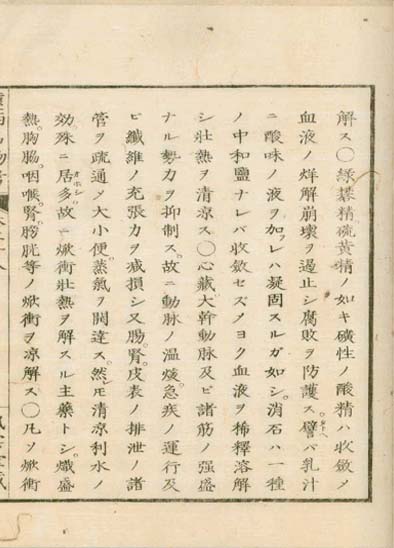 解ス〇緑礬精硫黄精ノ如キ礦性ノ酸精ハ收斂メ
血液ノ烊解崩壊ヲ遏止シ腐敗ヲ防護ス譬バ乳汁
ニ酸味ノ液ヲ加フレハ凝固スルガ如シ。消石ハ一種
ノ中和鹽ナレバ收斂セズメヨク血液ヲ稀釋溶解
シ壮熱ヲ清凉ス。〇心藏大幹動脉及ビ諸筋ノ强盛
ナル勢力ヲ抑制ス。故ニ動脉ノ温煖急疾ノ運行及
ビ纖維ノ充張力ヲ减損シ又腸。腎。皮表ノ排泄ノ諸
管ヲ疏通メ大小便。蒸氣ヲ開達ス。然モ清凉利水ノ
効殊ニ居多オホシ。故ニ焮衝壮熱ヲ解スル主藥トシ。熾盛
熱胸脇。咽喉。腎。膀胱等ノ焮衝ヲ凉解ス〇凡ソ焮衝